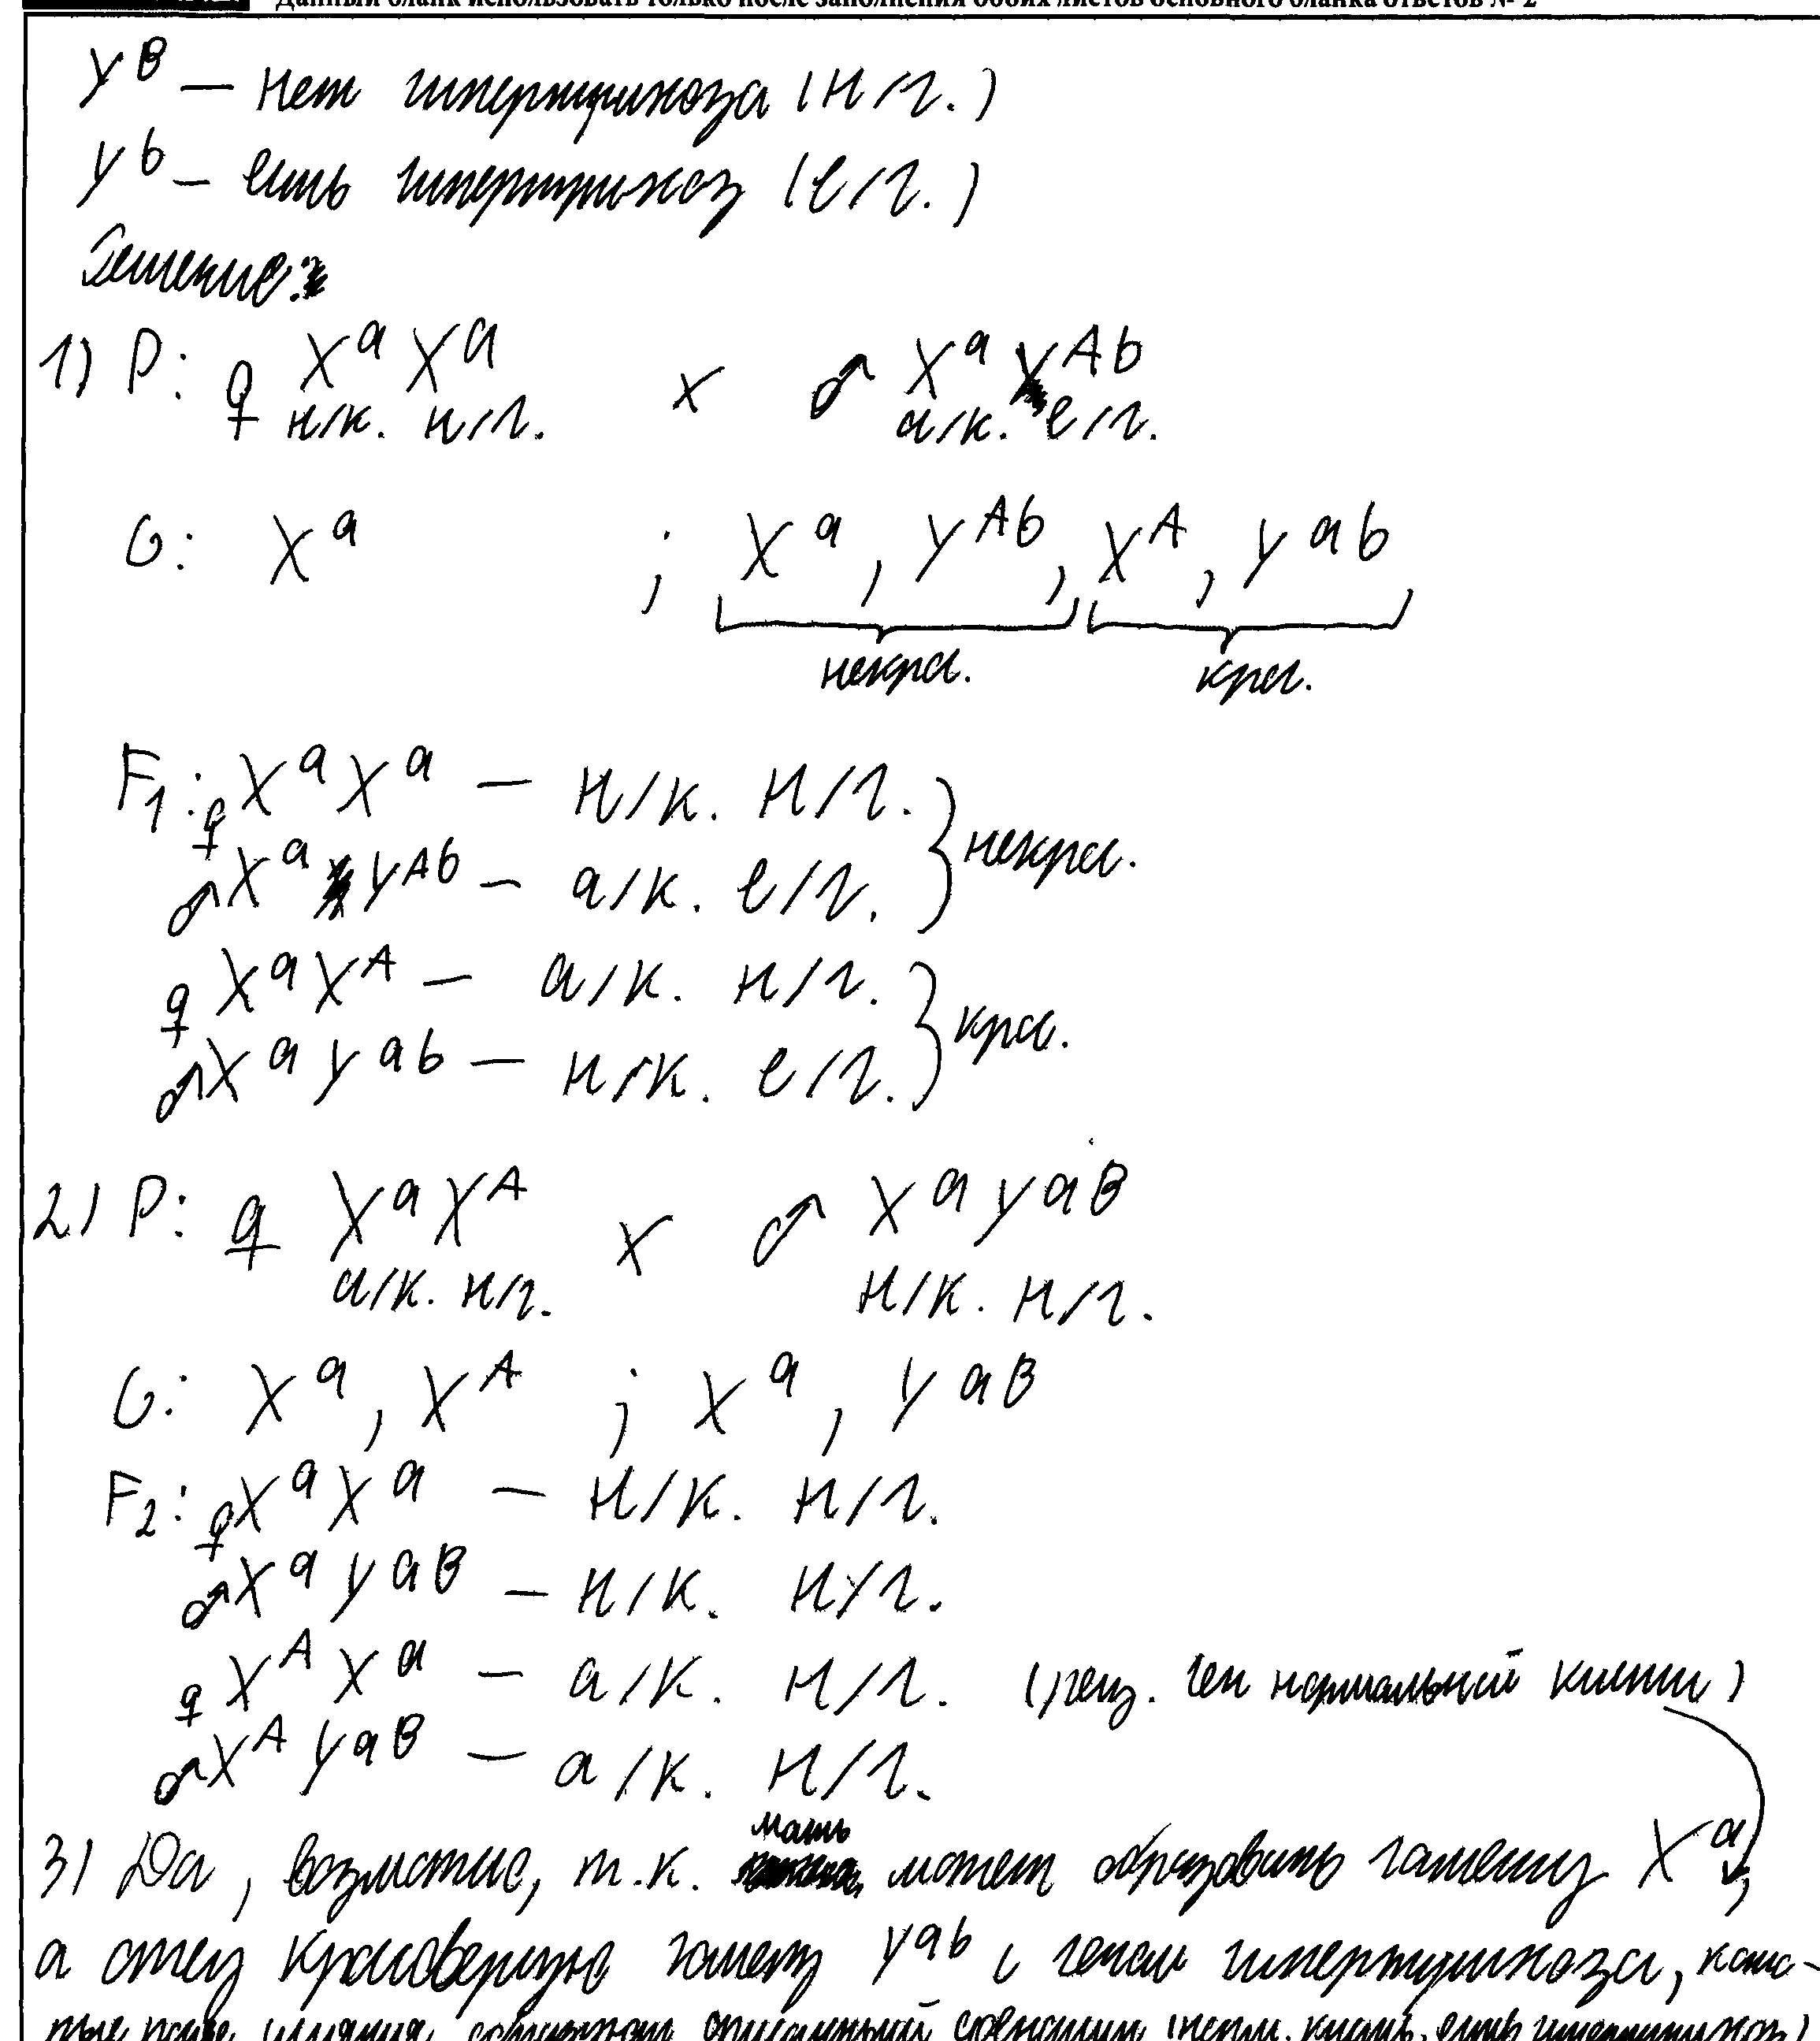 Данный бланк использовать только после заполнения обоих листов основного бланка ответов № 2
Y^B — нет гипертрихоза (н/г.)
Y^b — есть гипертрихоз (е/г.)
Решение:
1) P: ♀ X^a X^a x ♂ X^a Y^Ab
н/к. н/г. а/к. е/г.
G: X^a ; X^a, Y^Ab, X^A, Y^ab
некрос. крос.
F1: ♀ X^a X^a — н/к. н/г.
♂ X^a Y^Ab — а/к. е/г. } некрос.
♀ X^a X^A — а/к. н/г.
♂ X^a Y^ab — н/к. е/г. } крос.
2) P: ♀ X^a X^A x ♂ X^a Y^aB
а/к. н/г. н/к. н/г.
G: X^a, X^A ; X^a, Y^aB
F2: ♀ X^a X^a — н/к. н/г.
♂ X^a Y^aB — н/к. н/г.
♀ X^A X^a — а/к. н/г. ген нормальной кисти)
♂ X^A Y^aB — а/к. н/г.
3) Да, возможно, т.к. мать может образовать гамету X^a,
а отец кроссоверную гамету Y^ab с геном гипертрихоза, кото-
рые после слияния